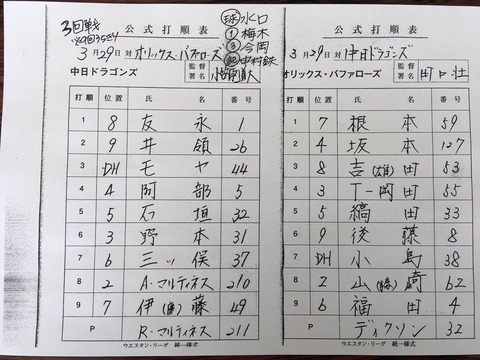 3回戦
※9回35ギリ
公式打順表
3月29日対オリックス・バファローズ
中日ドラゴンズ
監督署名
球 水口
① 梅木
③ 今岡
中村鉄
打順 位置 氏名 番号
1 8 友永 1
2 9 井領 26
3 DH モヤ 44
4 4 阿部 5
5 5 石垣 32
6 3 野本 31
7 6 三ッ俣 37
8 2 A・マルティネス 210
9 7 伊(康)藤 49
P R・マルティネス 211
ウエスタン・リーグ 統一様式
公式打順表
3月29日対中日ドラゴンズ
オリックス・バファローズ
監督署名 田口壮
打順 位置 氏名 番号
1 7 根本 59
2 4 坂本 127
3 8 吉(雄)田 53
4 3 T-岡田 55
5 5 縞田 33
6 9 後藤 8
7 DH 小島 38
8 2 山(勝)崎 62
9 6 福田 4
P ディクソン 32
ウエスタン・リーグ 統一様式